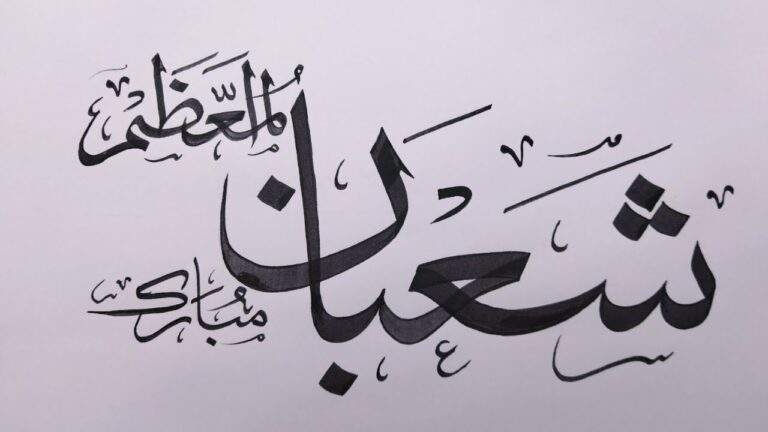 شَعبان
المُعَظَّم
مُبارک